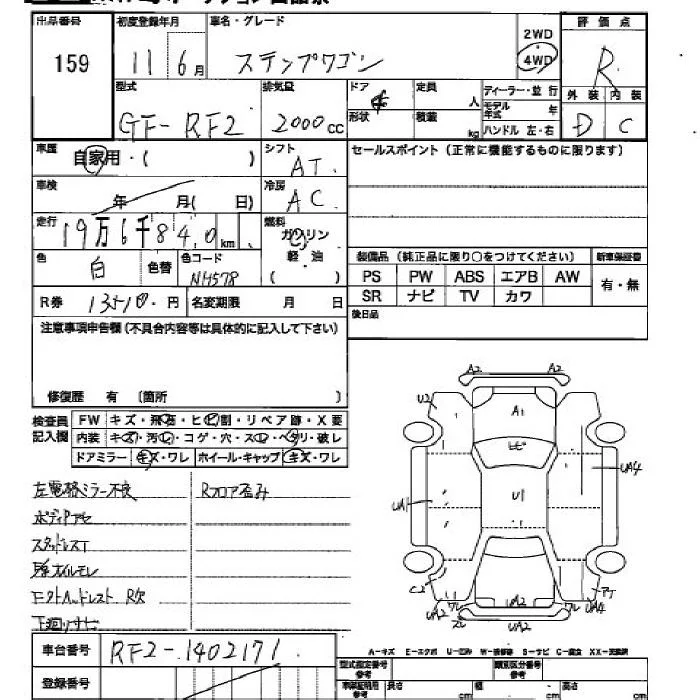 出品番号 初度登録年月 車名・グレード 評価点
159 11 6月 ステップワゴン 2WD・4WD R
型式 排気量 ドア 定員 人 ディーラー・並行 外装 内装
GF-RF2 2000cc 形状 積載 kg モデル年式 年 ハンドル 左・右 D C
車歴 自家用・( ) シフト AT セールスポイント (正常に機能するものに限ります)
車検 年 月( 日) 冷房 AC
走行 19万6千840km 燃料 ガソリン 軽油 ( )
色 白 色替 色コード NH578 装備品 (純正品に限り○をつけてください) 新車保証書
PS PW ABS エアB AW 有・無
R券 13510円 名変期限 月 日 SR ナビ TV カワ
注意事項申告欄(不具合内容等は具体的に記入して下さい) 後日品
修復歴 有 〔箇所 〕
検査員記入欄 FW キズ・飛石・ヒビ割・リペア跡・X要
内装 キズ・汚レ・コゲ・穴・スレ・ヘタリ・破レ
ドアミラー キズ・ワレ ホイール・キャップ キズ・ワレ
左電格ミラー不良 Rフロア歪み
ボディP
スタッドレスT
オイルモレ
ヘッドレスト R欠
下廻りサビ
A2 A2
U2 A1
ヒビ
UA4
UA1 U1
C2 ワレ UA2 ワレ
UA2 UA2 UA4
車台番号 RF2-1402171
A-キズ E-エクボ U-凹み W-補修跡 S-サビ C-腐食 XX-交換済
登録番号 型式指定番号 参考 類別区分番号 参考
車体証明用 参考 長さ cm 幅 cm 高さ cm